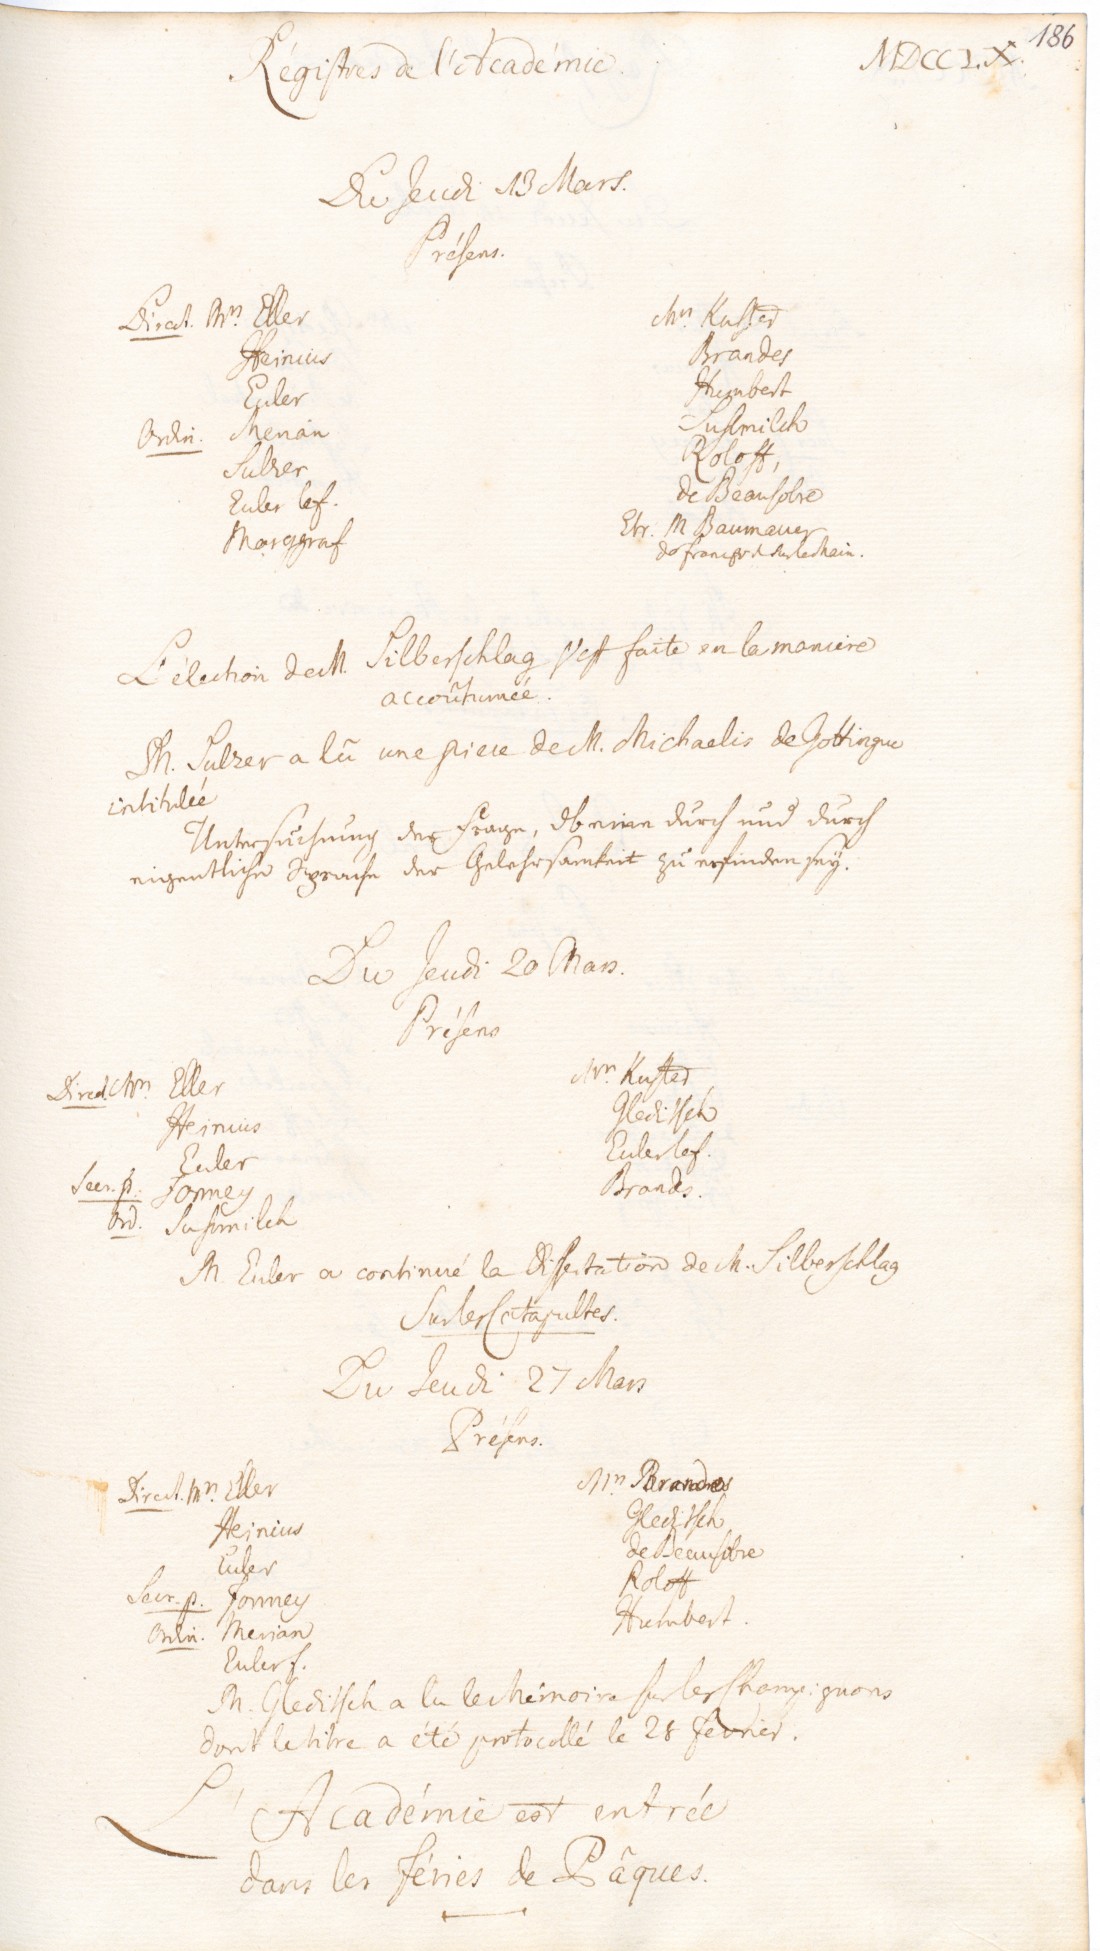 186
Régistres de l'Académie.
MDCCLX.
Du Jeudi 13 Mars.
Présens.
Direct. Mrs. Eller
Heinius
Euler
Ordin. Merian
Sulzer
Euler le f.
Marggraf
Mrs. Kuster
Brandes
Humbert
Sußmilch
Roloff,
de Beausobre
Etr. M Baumauer
de sur le Mein.
L'élection de M. Silberschlag s'est faite en la maniere
accoûtumée.
M. Sulzer a lû une piece de M. Michaelis de Gottingue
intitulée
Untersuchung der Frage, Ob eine durch und durch
eigentliche Sprache der Gelehrsamkeit zu erfinden sey.
Du Jeudi 20 Mars.
Présens
Direct. Mrs. Eller
Heinius
Euler
Secr. p. Formey
Ord. Sußmilch
Mrs. Kuster
Gleditsch
Euler le f.
Brands.
M. Euler a continué la Dissertation de M. Silberschlag
Sur les Catapultes.
Du Jeudi 27 Mars
Présens.
Direct. Mrs. Eller
Heinius
Euler
Secr. p. Formey
Ordin. Merian
Euler f.
Mrs. Brandes
Gleditsch
de Beausobre
Roloff
Humbert.
M. Gleditsch a lu le Mémoire sur les Champignons
dont le titre a été protocollé le 28 fevrier.
L'Académie est entrée
dans les féries de Pâques.